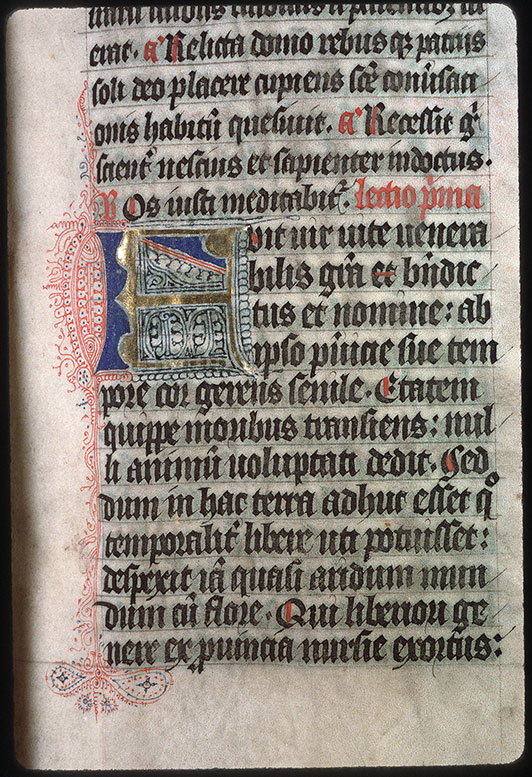 erat. a̅ Relicta domo rebusqȝ patris
soli deo placere cupiens sc̅e conu̅sati
onis habitu̅ quesiuit. a̅ Recessit gͥ
scient᷑ nescius et sapienter indoctus.
R Os iusti meditabit᷑. Lectio p̅ma
Fuit uir uite uenera
bilis gr̅a et bn̅dic
tus et nomine: ab
ipso pu̅icie sue tem
pore cor gerens senile. Etatem
quippe moribus transiens: nul
li animu̅ uoluptati dedit. Sed
dum in hac terra adhuc esset qͦ
temporalit᷑ libere uti potuisset:
despexit ia̅ quasi aridum mun
dum cu̅ flore. Qui liberiori ge
nere ex ꝓuincia nursie exortus: